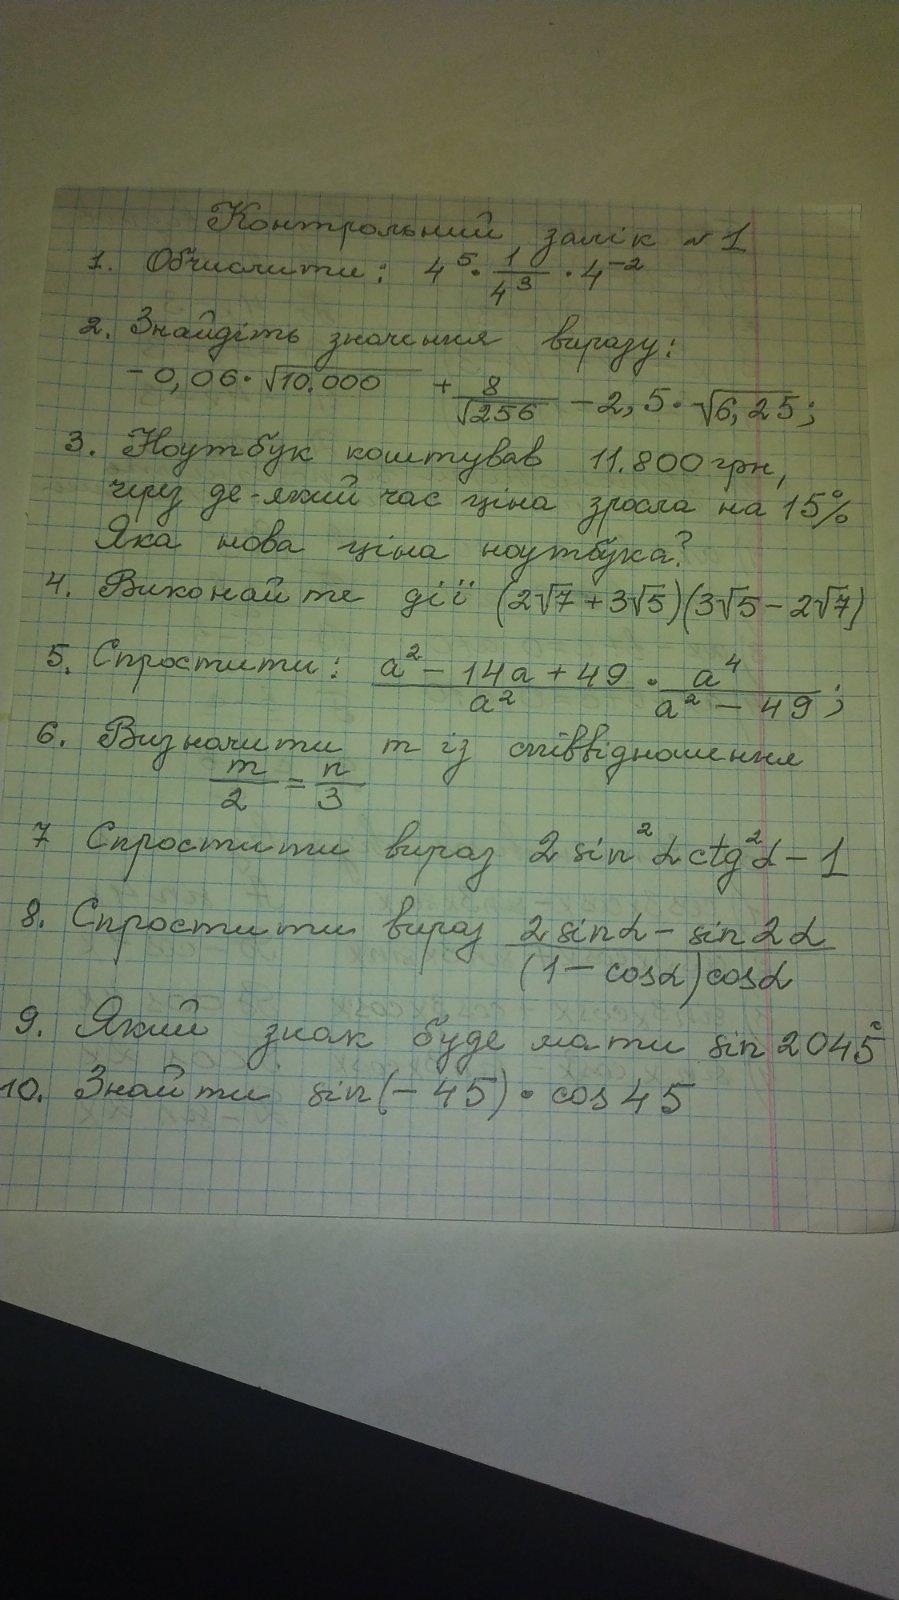 Контрольний залік №1
1. Обчислити: 4⁵ · 1/4³ · 4⁻²
2. Знайдіть значення виразу:
-0,06·√10.000 + 8/√256 - 2,5·√6,25;
3. Ноутбук коштував 11.800 грн,
через де-який час ціна зросла на 15%
Яка нова ціна ноутбука?
4. Виконайте дії (2√7 + 3√5)(3√5 - 2√7)
5. Спростити: (a² - 14a + 49)/a² · a⁴/(a² - 49);
6. Визначити m із співвідношення
m/2 = n/3
7 Спростити вираз 2 sin²α ctg²α - 1
8. Спростити вираз (2 sinα - sin2α)/((1 - cosα)cosα)
9. Який знак буде мати sin 2045°
10. Знайти sin(-45) · cos 45